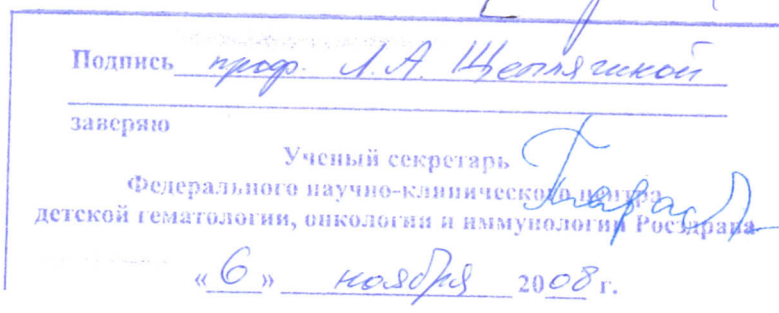 Подпись проф. Л.А. Щеплягиной
заверяю
Ученый секретарь
Федерального научно-клинического центра
детской гематологии, онкологии и иммунологии Росздрава
«6» ноября 2008 г.